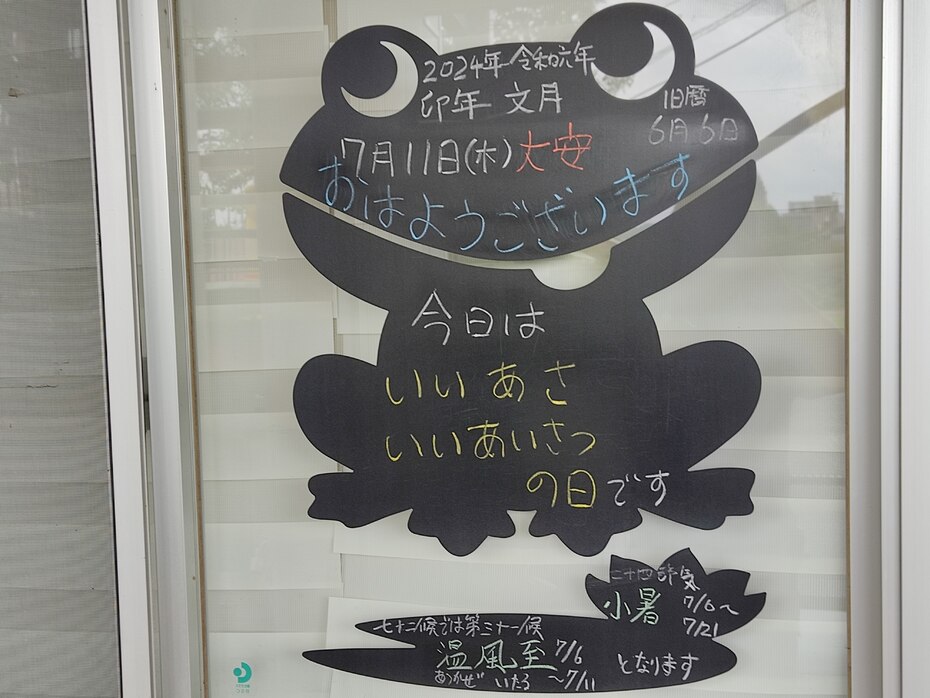 2024年 令和六年
卯年 文月
旧暦
6月6日
7月11日(木)大安
おはようございます
今日は
いい あさ
いいあいさつ
の日です
二十四節気
小暑 7/6〜
7/21
七十二候では第三十一候
温風至 7/6
あつかぜ いたる 〜7/11
となります